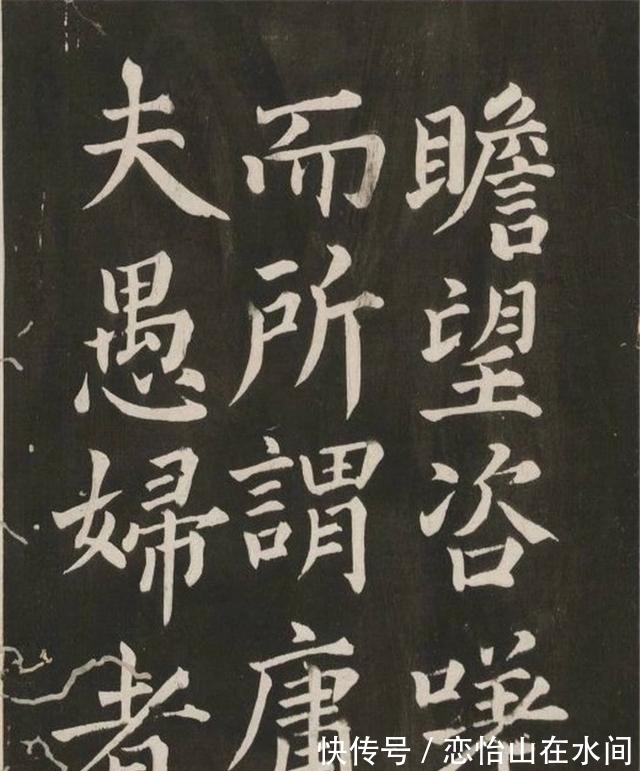 瞻望咨嗟
而所謂庸
夫愚婦者
快传号 / 恋怡山在水间